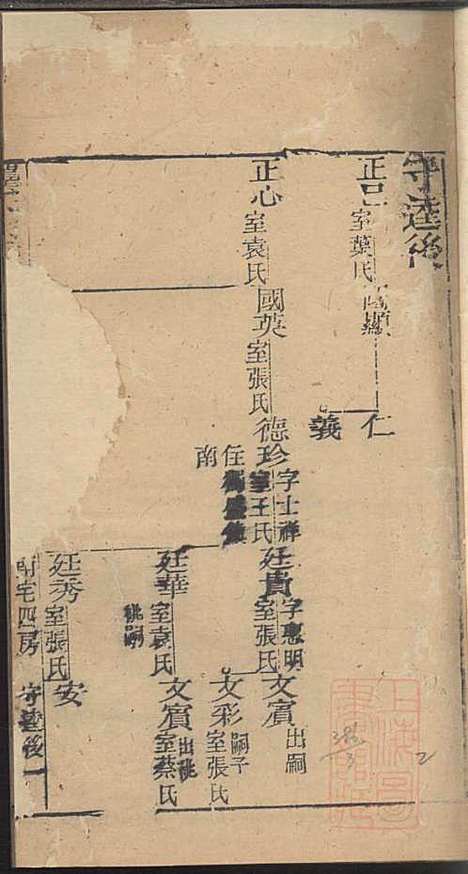 守逵後
正己 室葉氏 國顯
仁
義
正心 室袁氏 國英 室張氏 德珍 字士祥 室王氏 廷貴 字惠明 室張氏 文賓 出嗣
住
南
文彩 嗣子 室張氏
廷華 室袁氏 文賓 出祧 室蔡氏
祧嗣
廷秀 室張氏 安
前宅四房 守逵後 一